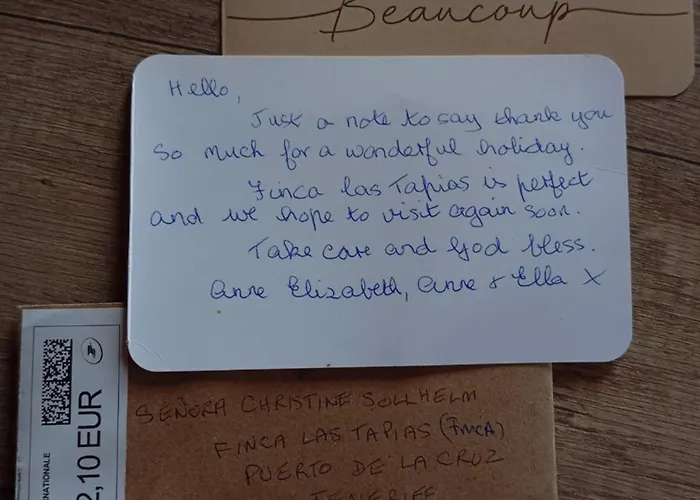 Beaucoup
Hello,
Just a note to say thank you
so much for a wonderful holiday.
Finca las Tapias is perfect
and we hope to visit again soon.
Take care and God bless.
Anne Elizabeth, Anne & Ella X
2,10 EUR
SEÑORA CHRISTINE SOLLHELM
FINCA LAS TAPIAS (FINCA)
PUERTO DE LA CRUZ
TENERIFE